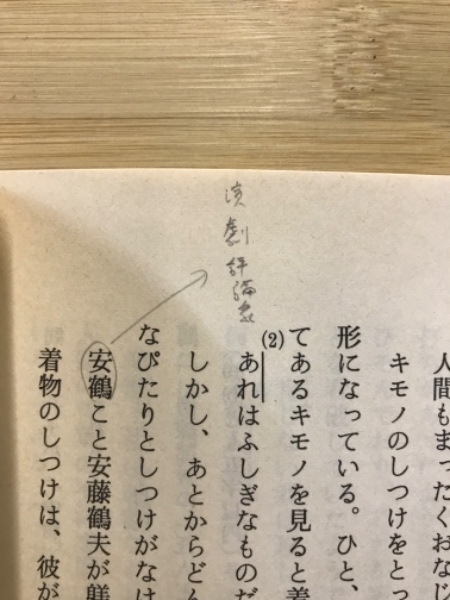 演劇評論家
人間もまったくおなじ
キモノのしつけをとっ
形になっている。ひと、
てあるキモノを見ると着
(2)
あれはふしぎなものだ
しかし、あとからどん
なぴたりとしつけがなけ
安鶴こと安藤鶴夫が躾
着物のしつけは、彼が